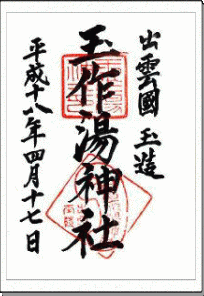 出雲國 玉造
玉作湯神社
平成十八年四月十七日